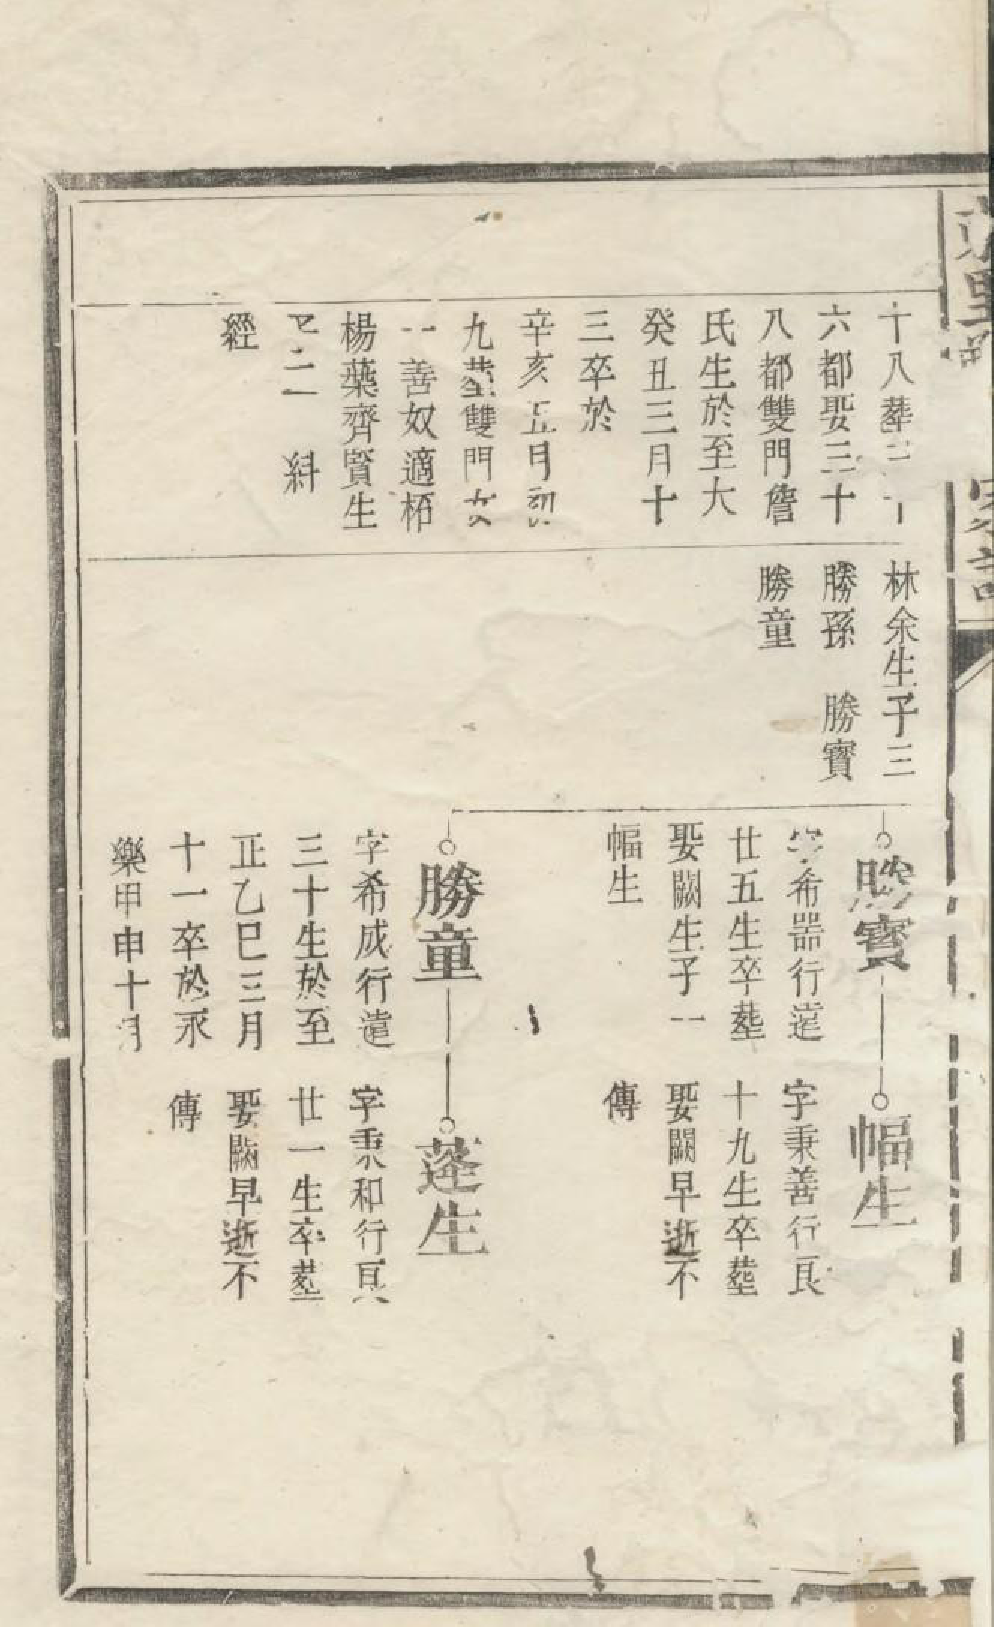 十八葬三十
六都娶三十
八都雙門詹
氏生於至大
癸丑三月十
三卒於
辛亥五月初
九葬雙門女
一善奴適栢
楊葉齊賢生
子二 科
經
林余生子三
勝孫 勝寶
勝童
勝寶
字希器行遣
廿五生卒塟
娶闕生子一
幅生
幅生
字秉善行良
十九生卒塟
娶闕早逝不
傳
勝童
字希成行遣
三十生於至
正乙巳三月
十一卒於永
樂甲申十月
蓬生
字秉和行良
廿一生卒塟
娶闕早逝不
傳